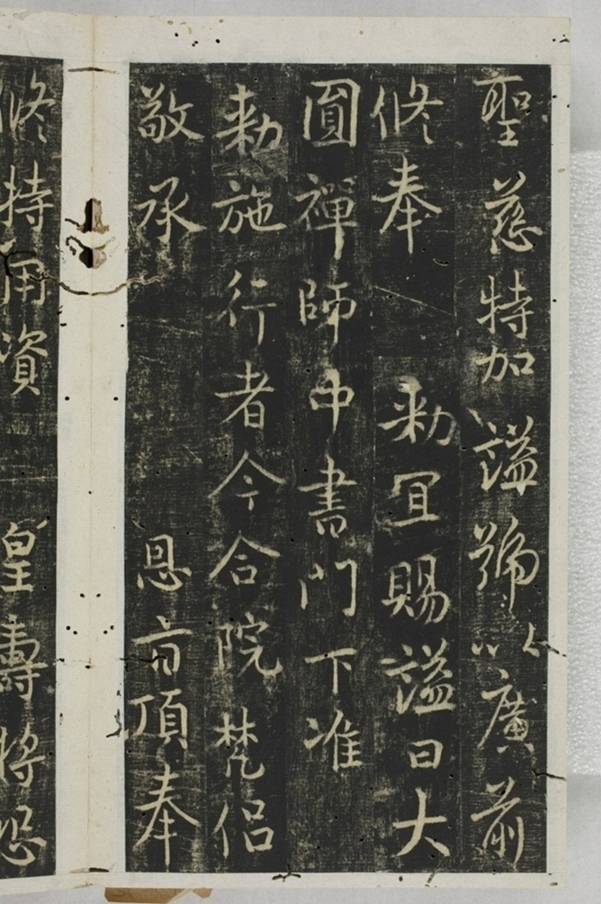 聖慈特加謚號以廣前
修奉　勑宜賜謚曰大
圓禪師中書門下准
勑施行者今合院梵侶
敬承　恩旨頂奉
修持用資　皇壽將恐